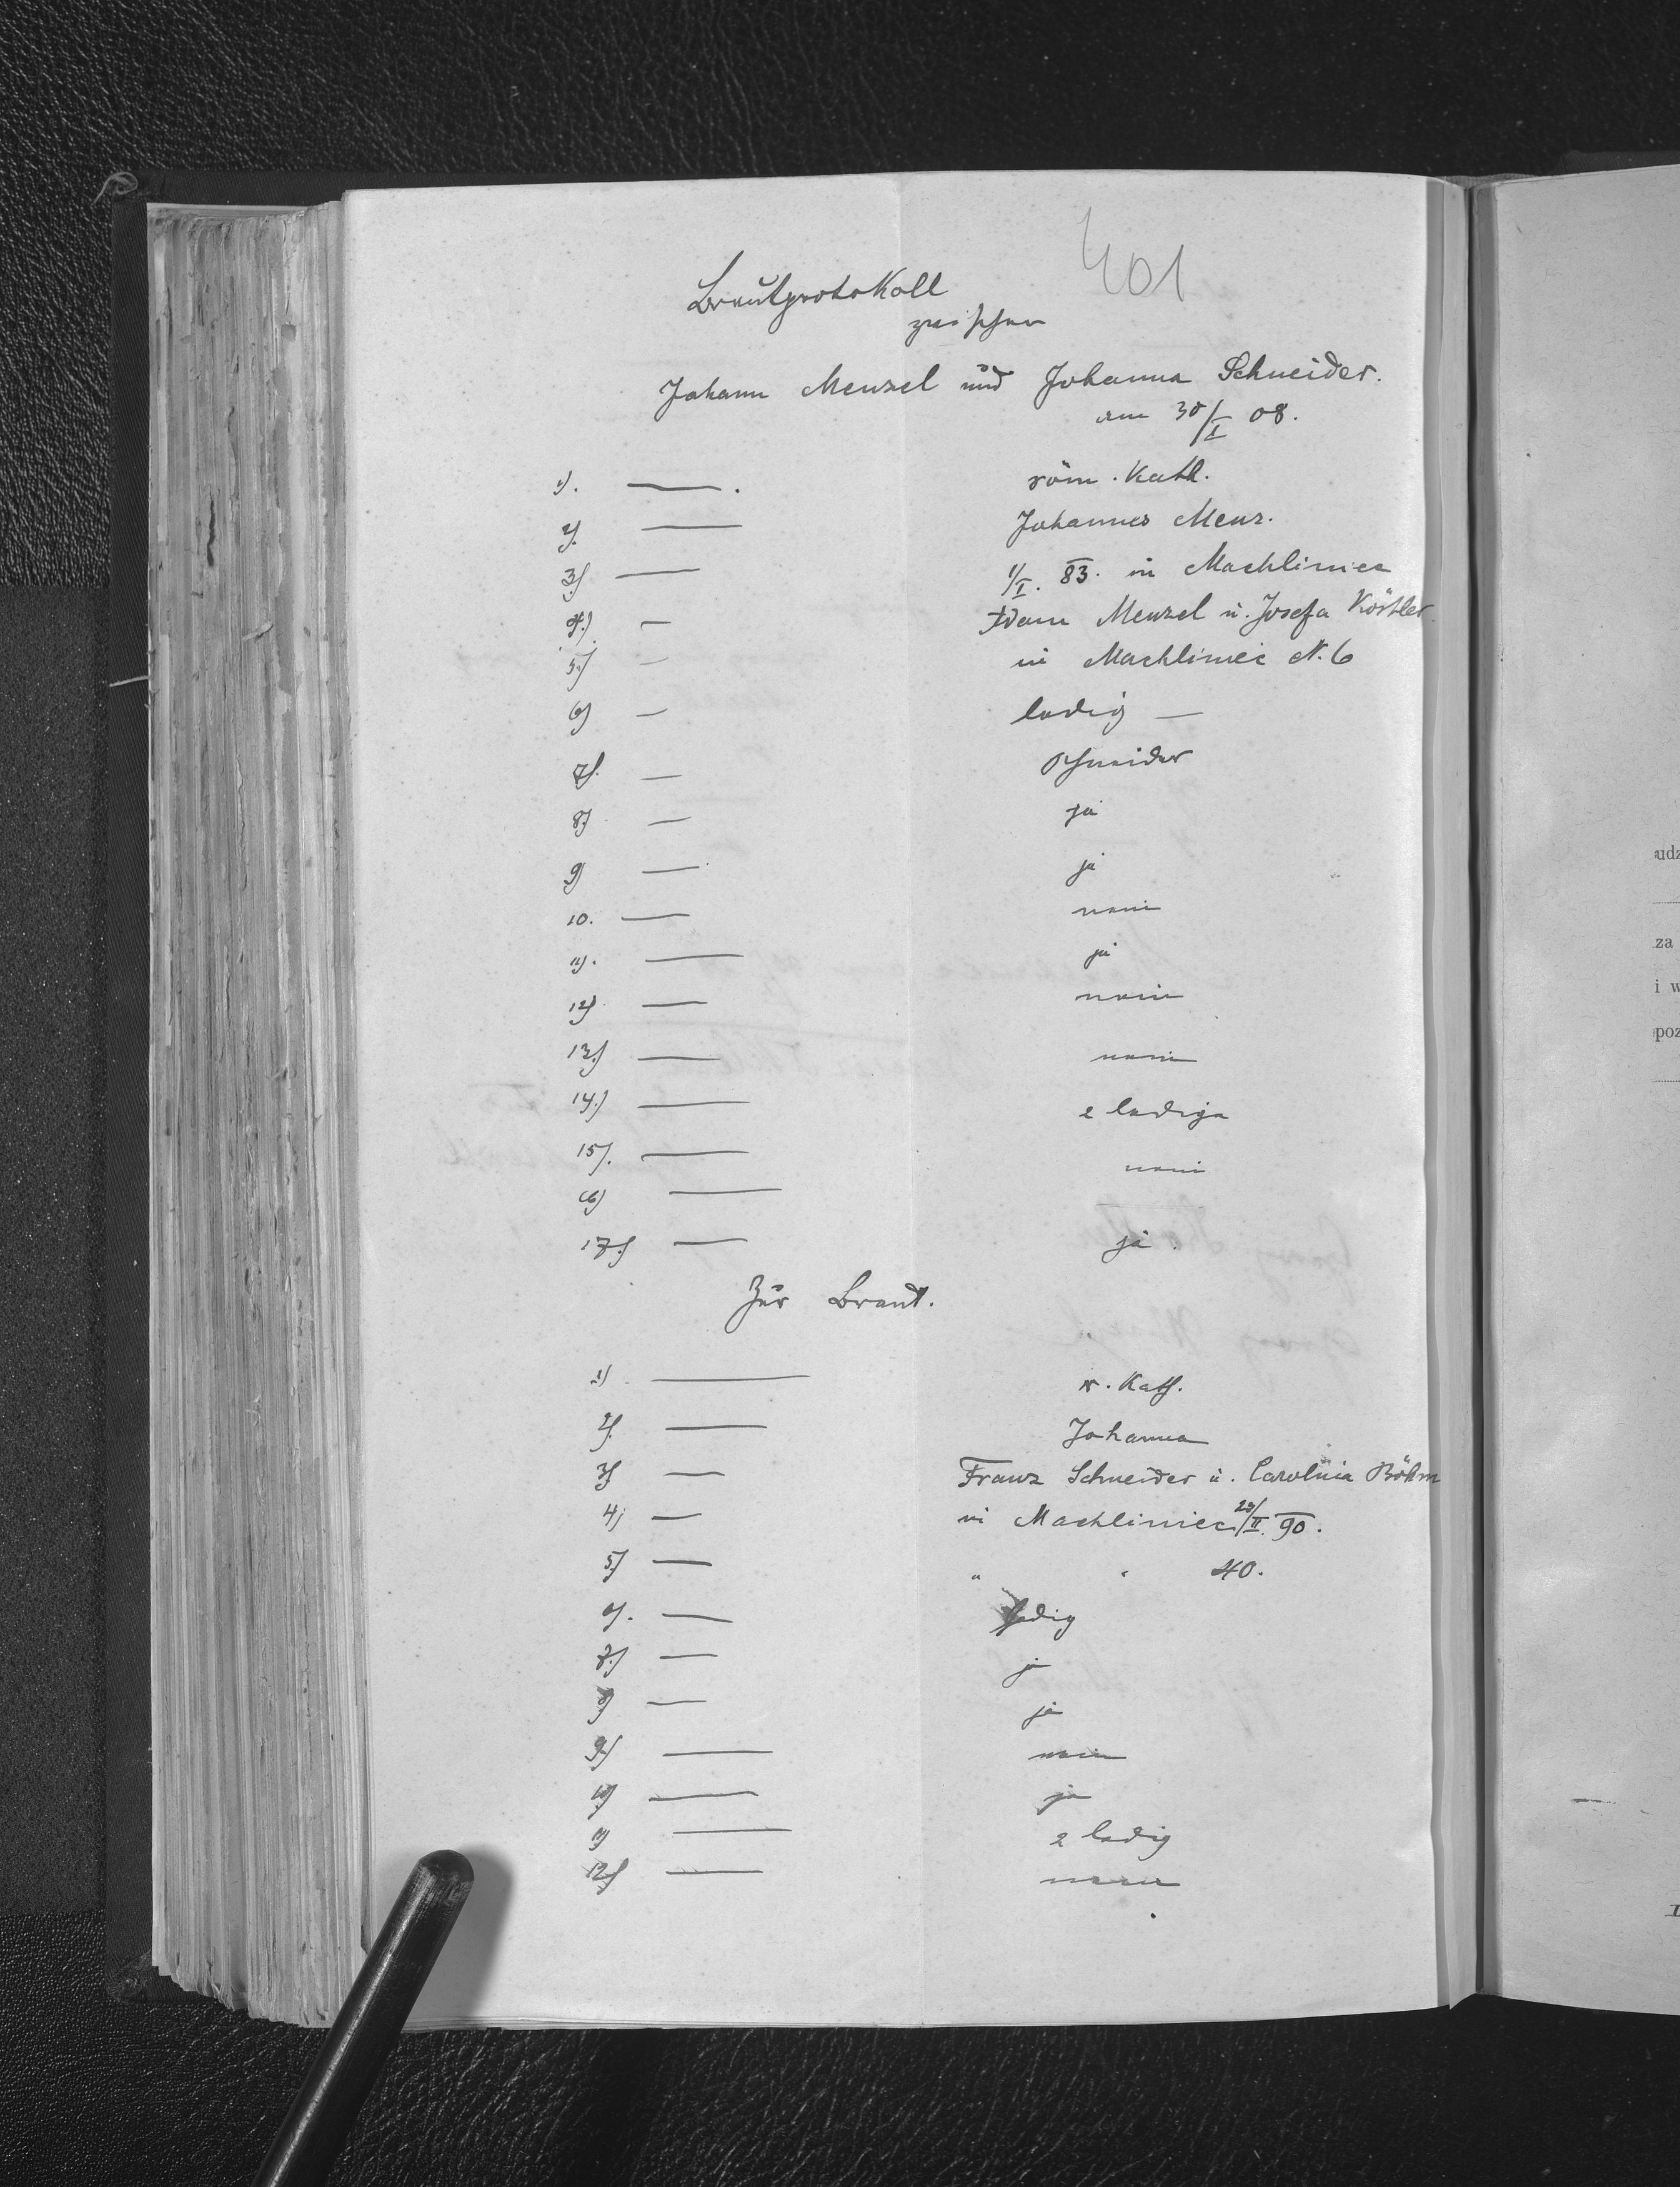 401
Brautprotokoll
zwischen
Johann Menzel und Johanna Schneider.
am 30/I 08.
1). —. röm. Kath.
2). — Johannes Menz.
3) — 1/I. 83. in Machliniec
4.) — Adam Menzel u. Josefa Köstler
5.) — in Machliniec N. 6
6) — ledig —
7). — Schneider
8.) — ja
9) — ja
10. — nein
11). — ja
12) — nein
13.) — nein
14.) — 2 ledige
15). — nein
16) —
17.) — ja.
Zur Braut.
1) — r. Kath.
2). — Johanna
3) — Franz Schneider u. Carolina Böhm
4) — in Machliniec /II. 90.
5) — " " 40.
6). — ledig
7.) — ja
8) — ja
9.) — nein
10) — ja
11) — 2 ledig
12) — nein
udz
za
i w
poz